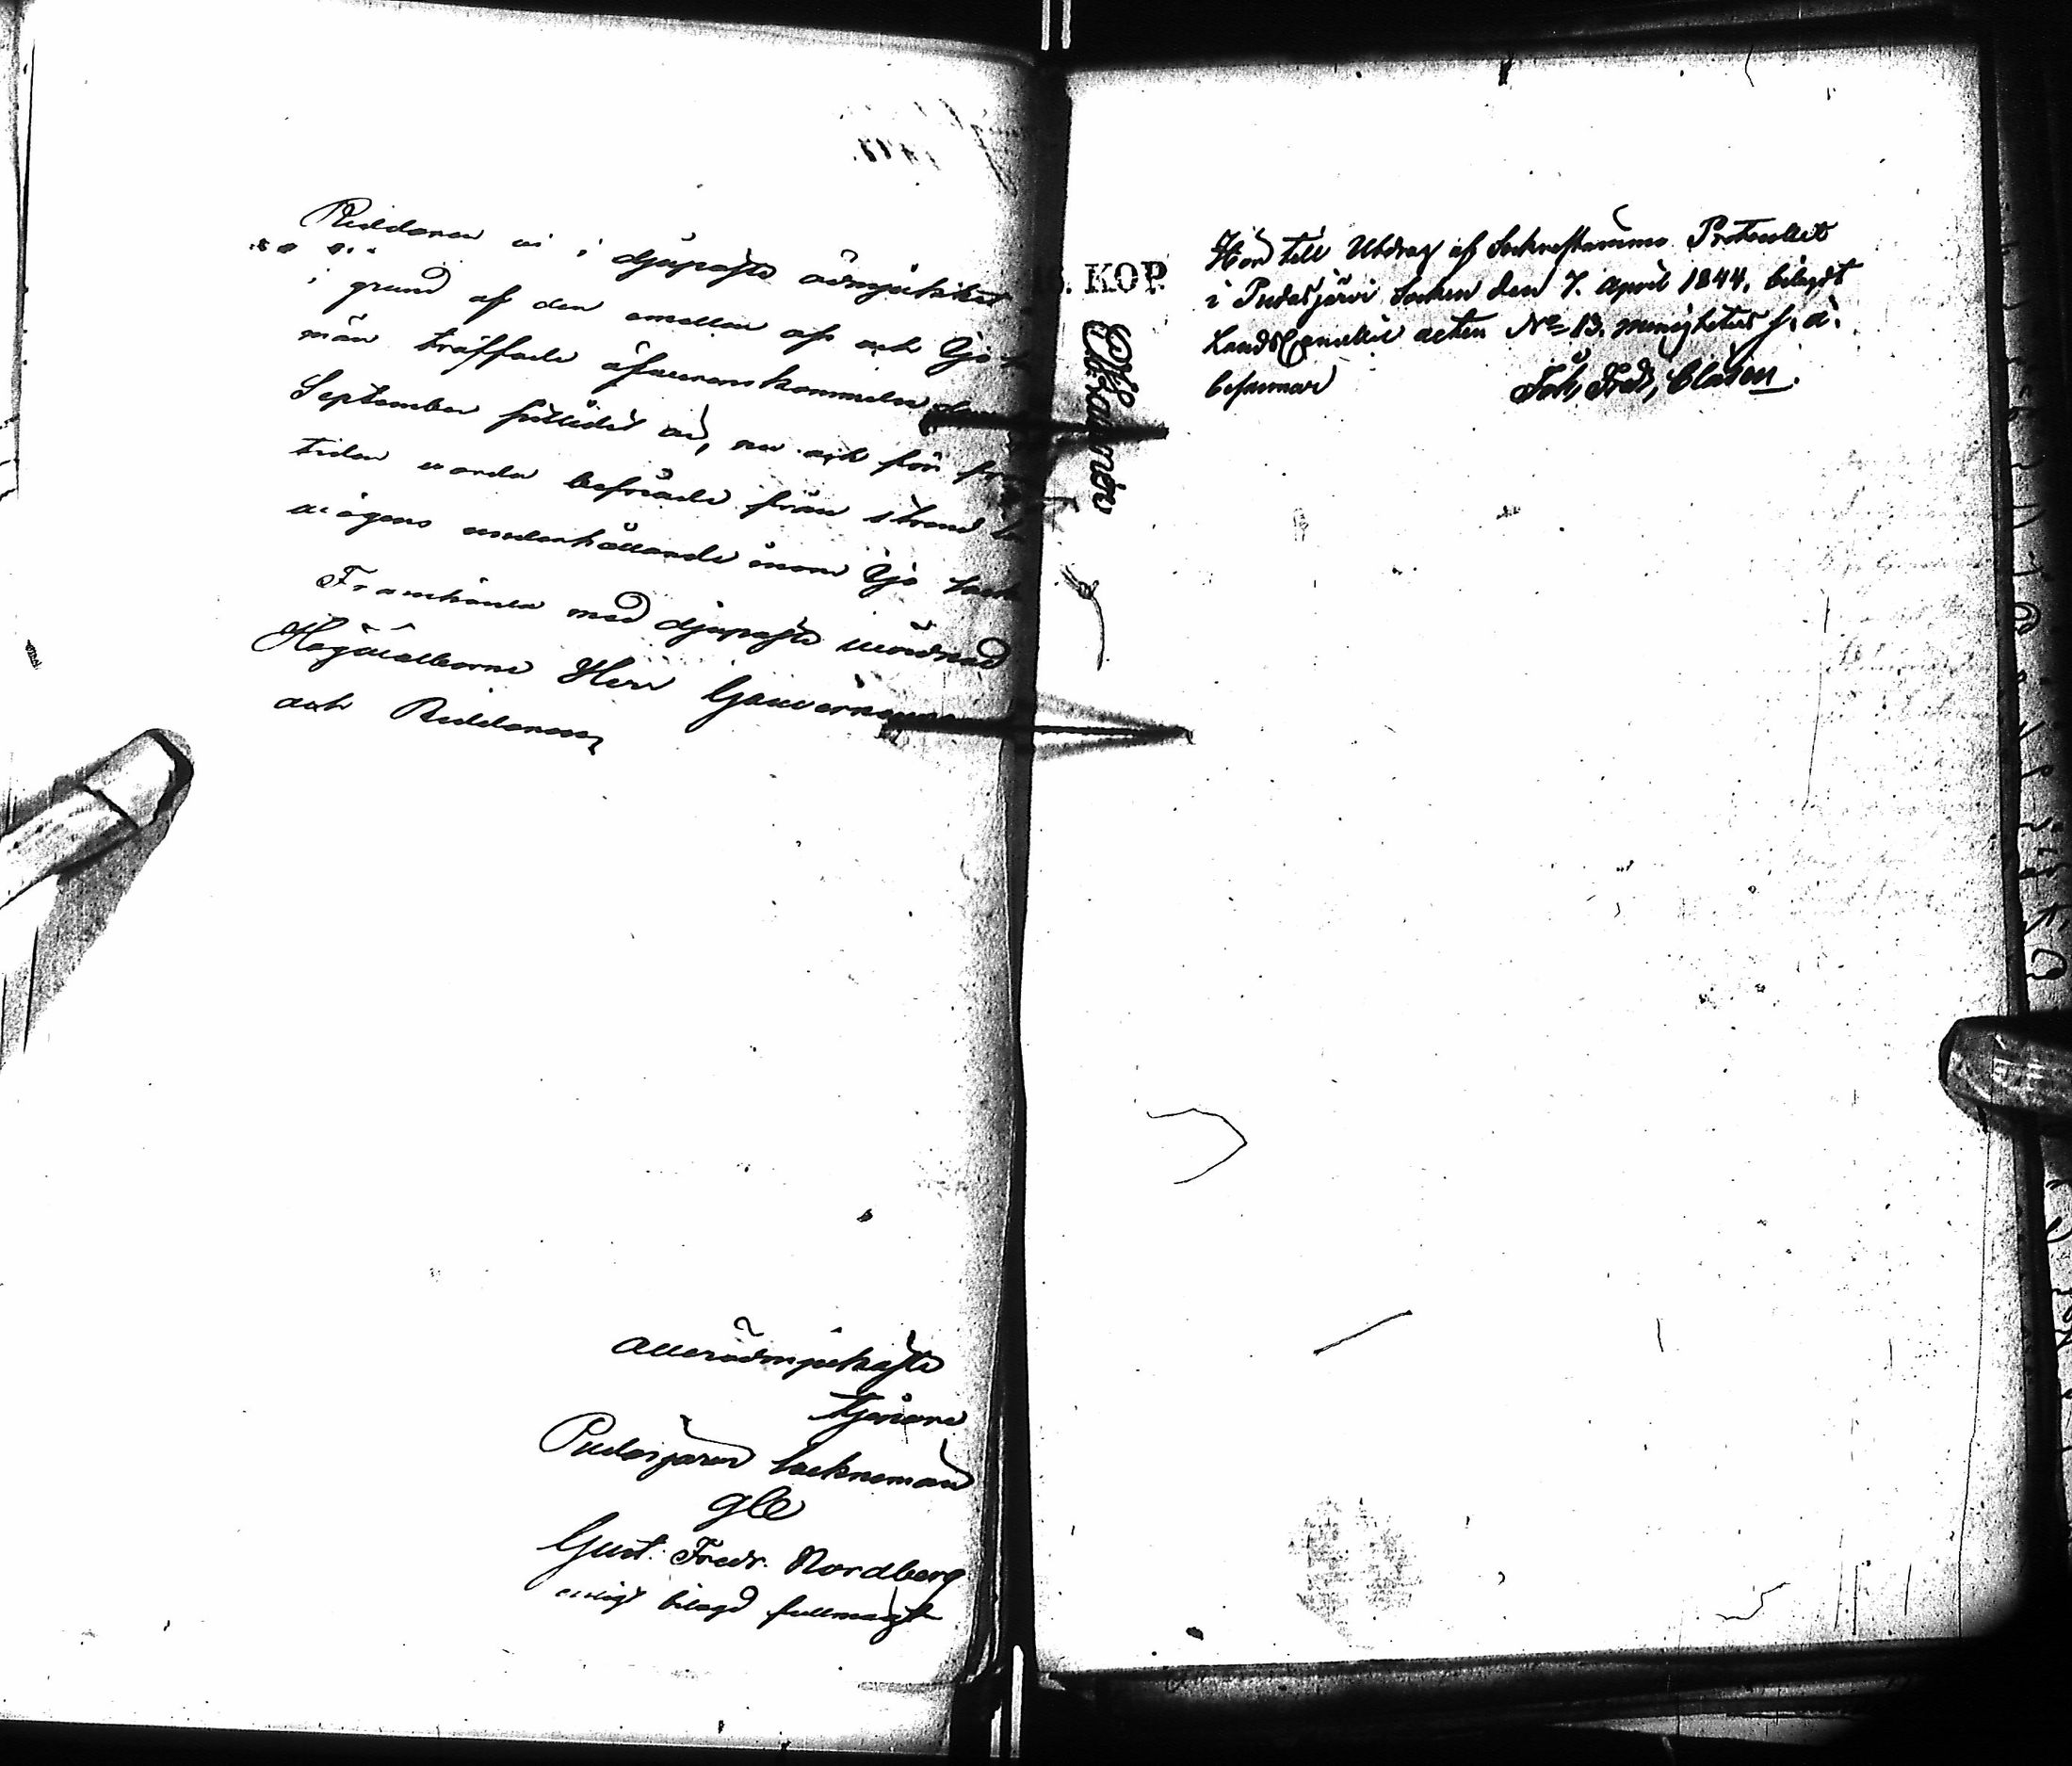 Riddaren vi i djupaste ödmjukhet
i grund af den emellan oss och Ijo
män träffade öfverenskommelse
September sistledit år, nu och för
tiden varda befriade från strand
vägens underhållande inom Ijo Sock
Framhärda med djupaste vördnad
Högvälborne Herr Gouverneurens
och Riddarens
allerödmjukaste
tjenare
Pudasjärvi Socknemän
gm
Gust. Fredr. Nordberg
enligt bilagd fullmagt
KOP.
Hörd till Utdrag af Socknestämmo Protocollet
i Pudasjärvi Socken den 7. April 1844, bilagdt
LandsCancellie acten No 13. menighetens s. a.
besvärar
Joh, Fredr, Clasen.